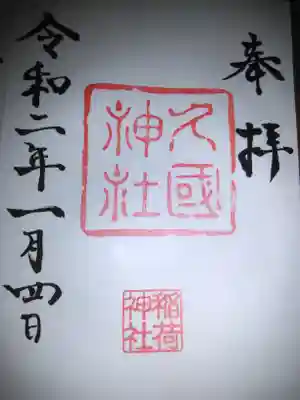 奉拝
久國神社
稲荷神社
令和二年一月四日